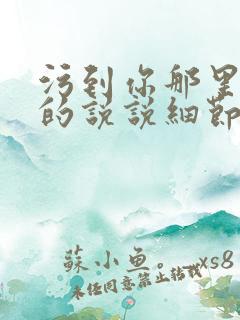 污到你那里
的说说細節
蘇小鱼。_xs8
未经同意禁止转载